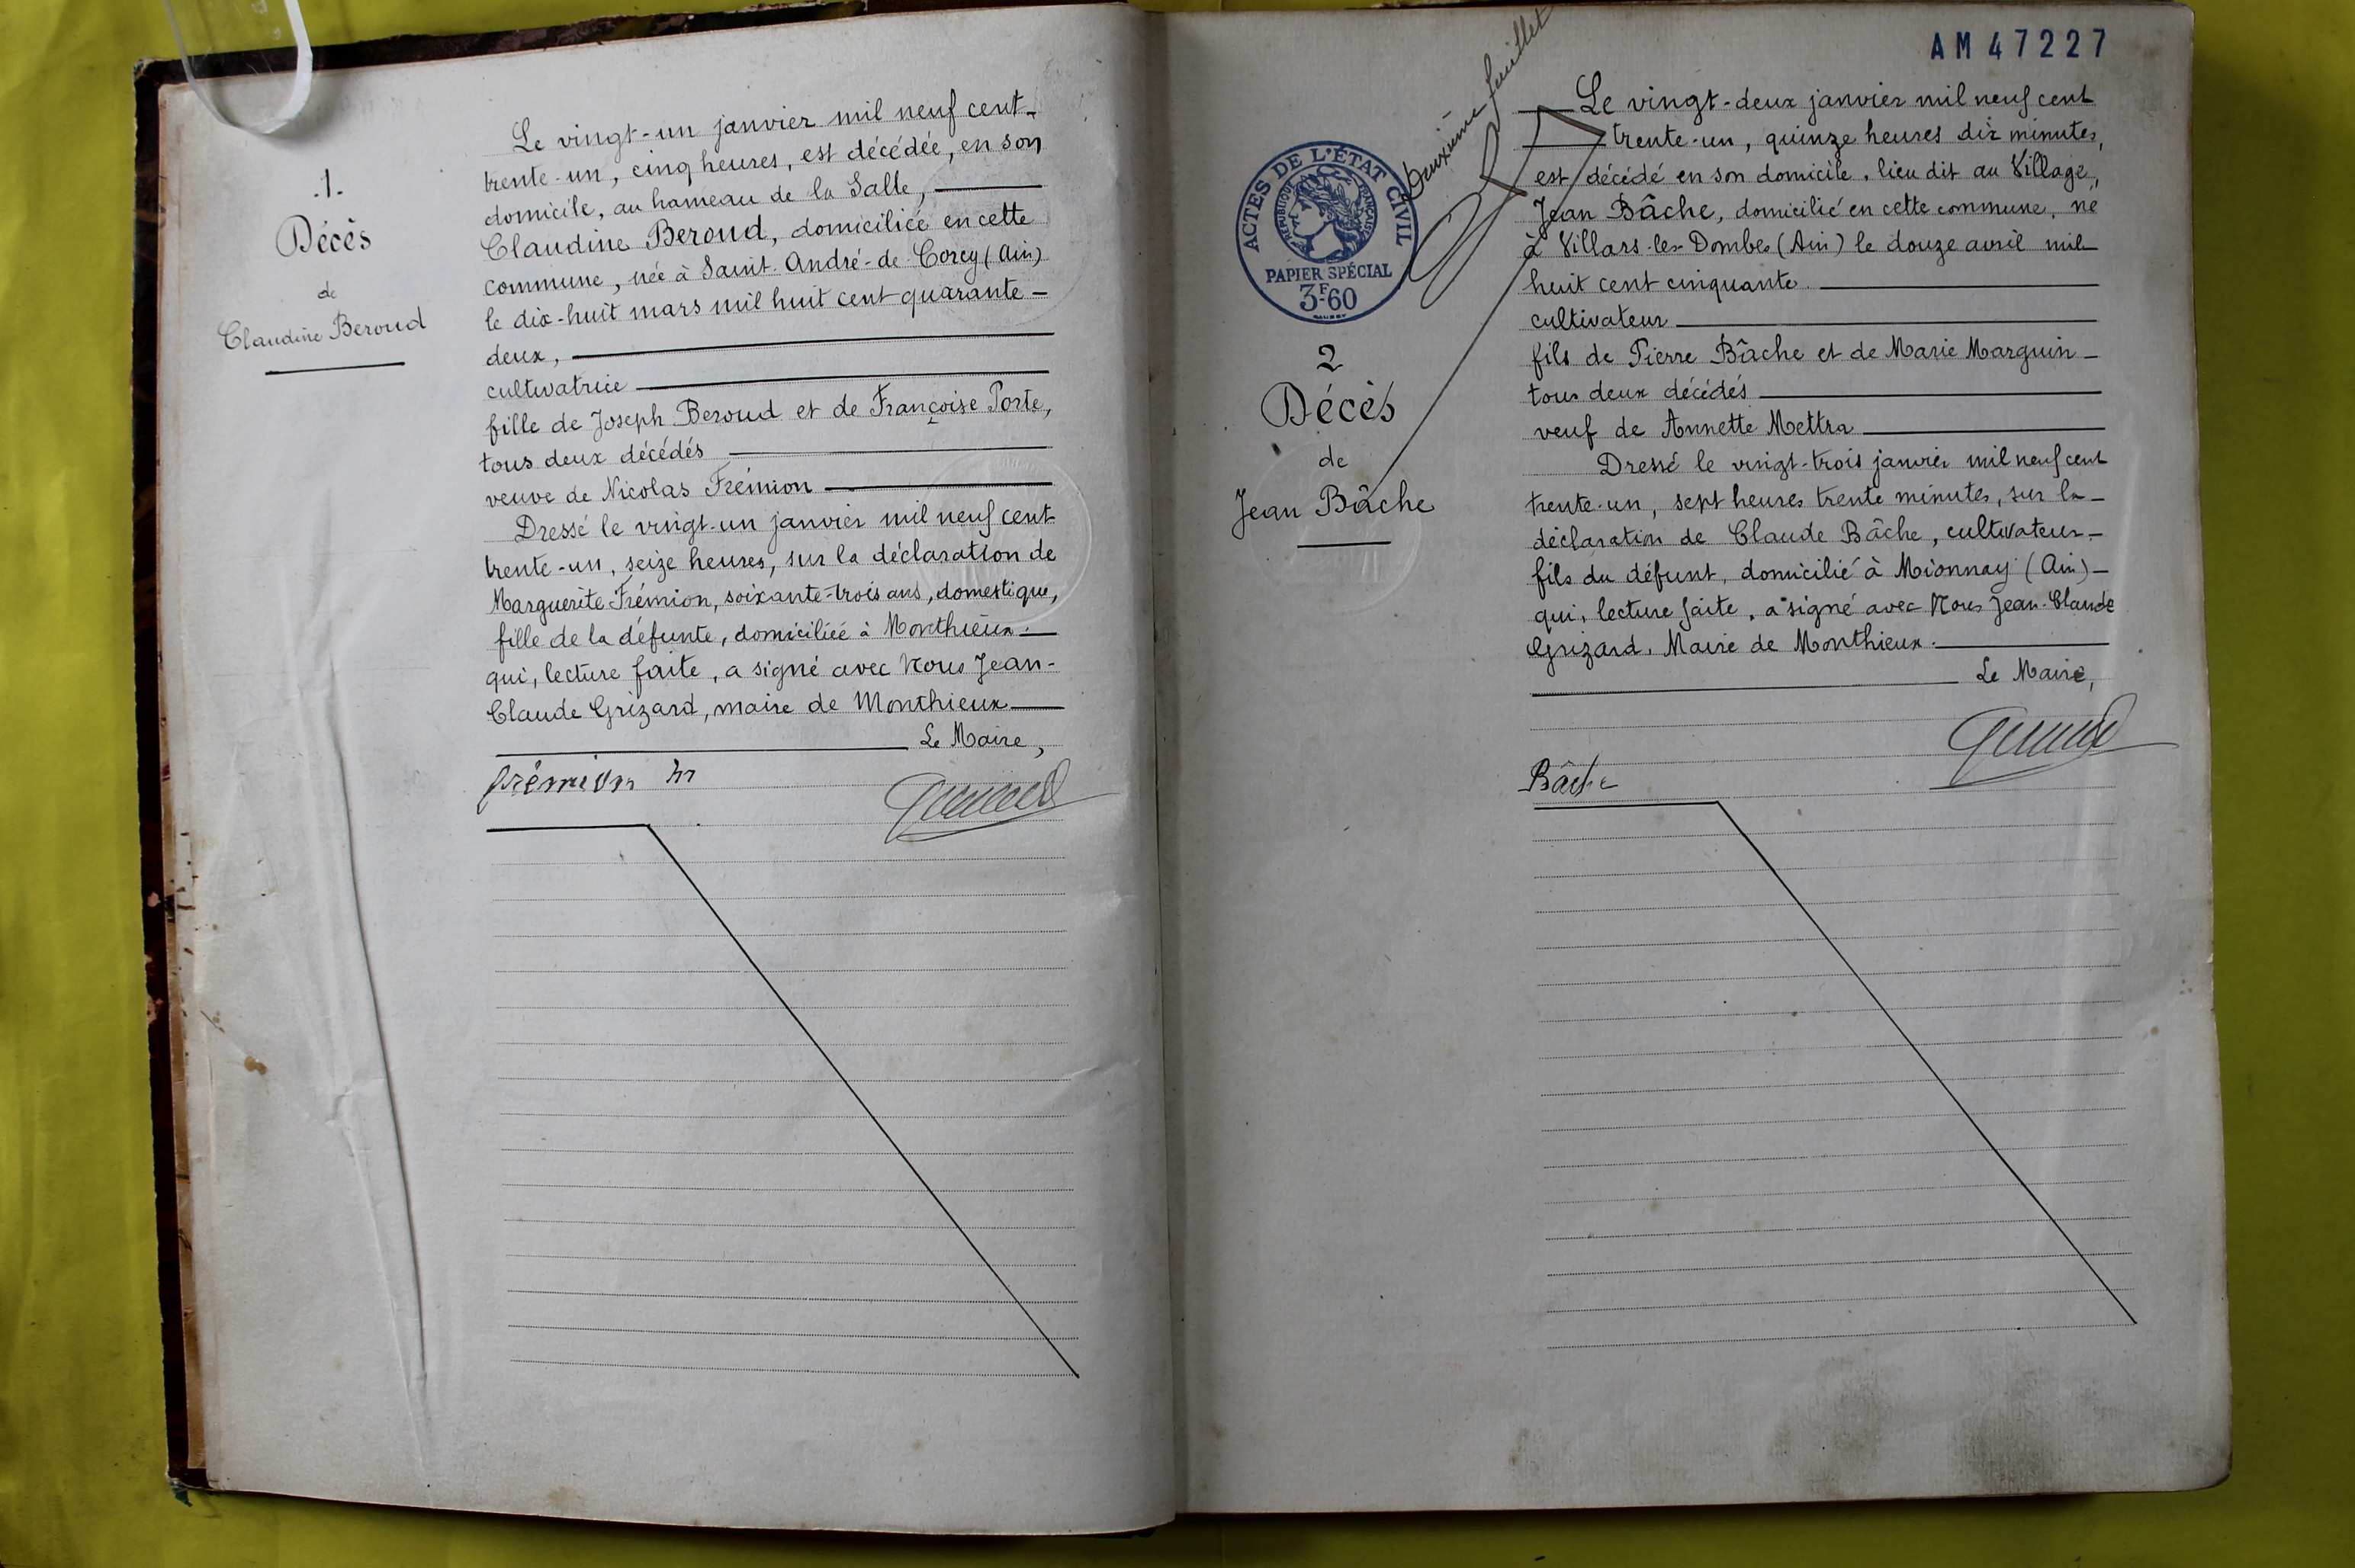 .1.
Décès
de
Claudine Beroud
Le vingt-un janvier mil neuf cent-
trente-un, cinq heures, est décédée, en son
domicile, au hameau de la Salle,
Claudine Beroud, domiciliée en cette
commune, née à Saint-André-de-Corcy (Ain)
le dix-huit mars mil huit cent quarante-
deux,
cultivatrice
fille de Joseph Beroud et de Françoise Porte,
tous deux décédés
veuve de Nicolas Frémion
Dressé le vingt-un janvier mil neuf cent
trente-un, seize heures, sur la déclaration de
Marguerite Frémion, soixante-trois ans, domestique,
fille de la défunte, domiciliée à Monthieux.
qui, lecture faite, a signé avec Nous Jean-
Claude Grizard, maire de Monthieux
Le Maire,
frémion m
AM 47227
Deuxième feuillet
ACTES DE L'ÉTAT CIVIL
RÉPUBLIQUE FRANÇAISE
PAPIER SPÉCIAL
3F60
2
Décès
de
Jean Bâche
Le vingt-deux janvier mil neuf cent
trente-un, quinze heures dix minutes,
est décédé en son domicile, lieu dit au Village,
Jean Bâche, domicilié en cette commune, né
à Villars-les-Dombes (Ain) le douze avril mil
huit cent cinquante.
cultivateur
fils de Pierre Bâche et de Marie Marguin
tous deux décédés
veuf de Annette Mettra
Dressé le vingt-trois janvier mil neuf cent
trente-un, sept heures trente minutes, sur la
déclaration de Claude Bâche, cultivateur
fils du défunt, domicilié à Mionnay (Ain)
qui, lecture faite, a signé avec Nous Jean-Claude
Grizard, Maire de Monthieux.
Le Maire,
Bâche